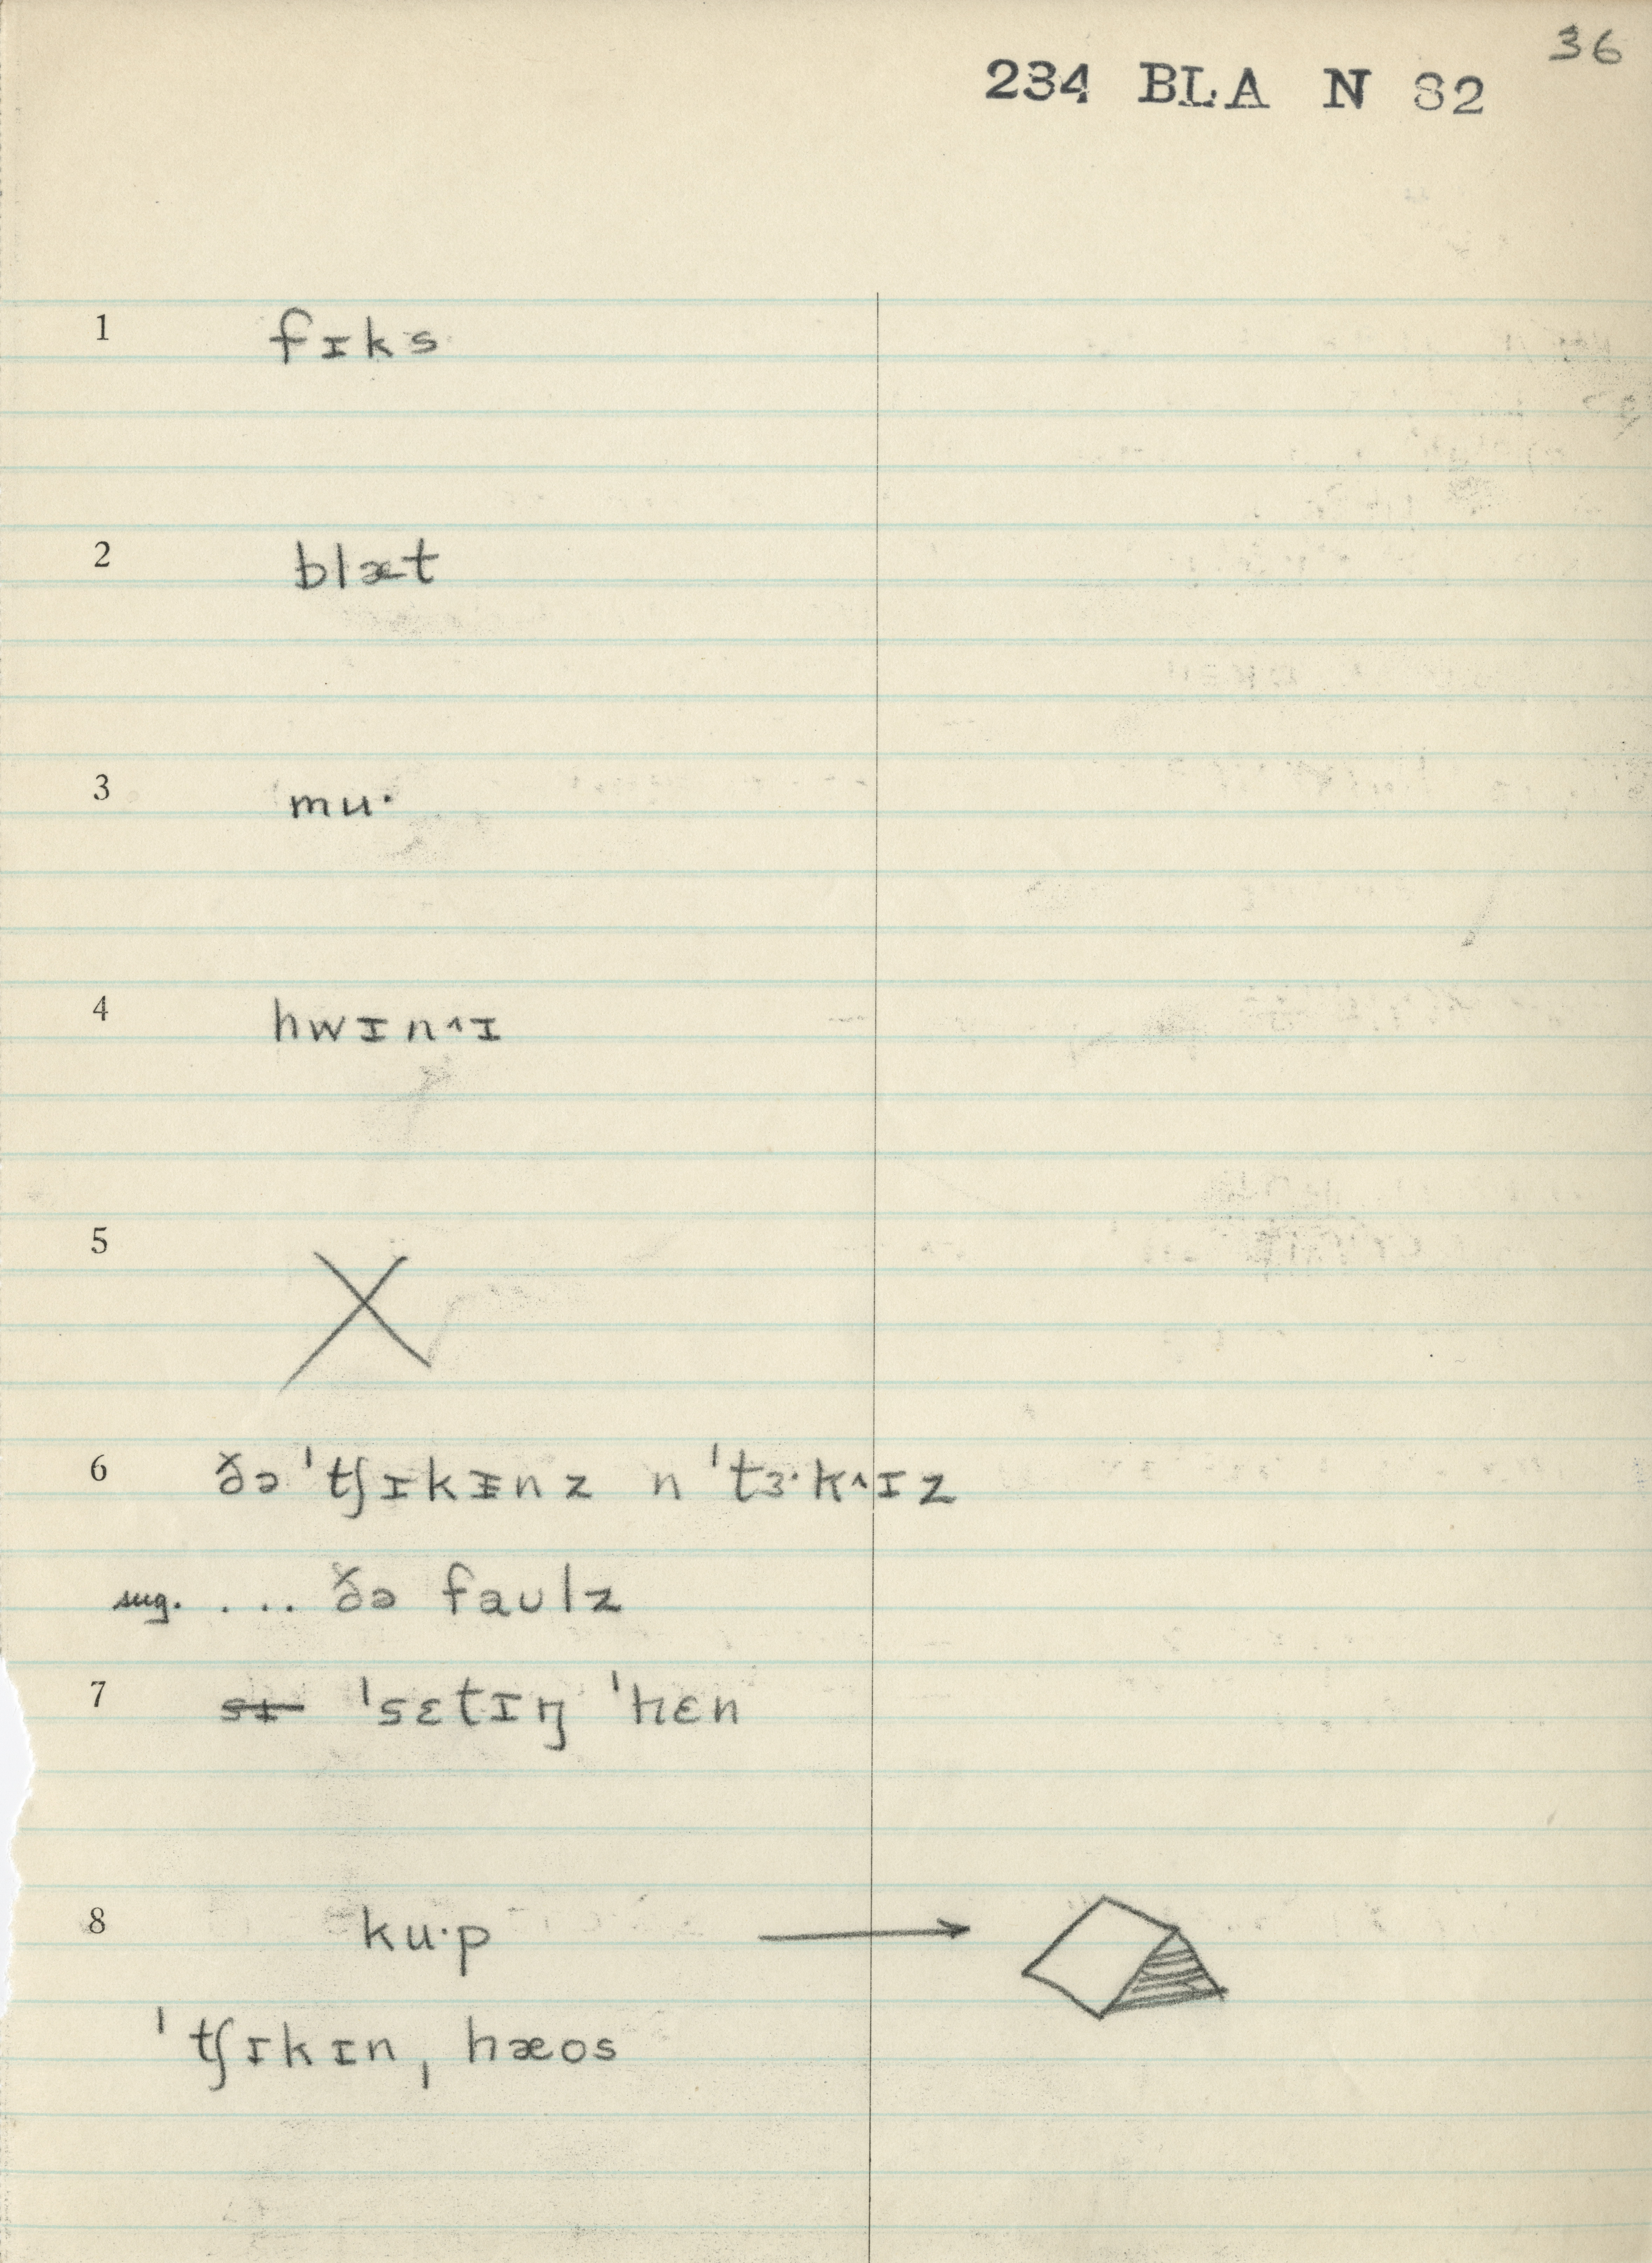 36
234 BLA N 82
1 fɪks
2 blæt
3 mu·
4 hwɪn^ɪ
5
6 ðə ˈtʃɪkᵻnz n ˈtɜ·k^ɪz
sug. .... ðə faʊlz
7 sɪ ˈsɛtɪŋ ˈhɛn
8 ku·p
ˈtʃɪkɪnˌhæos